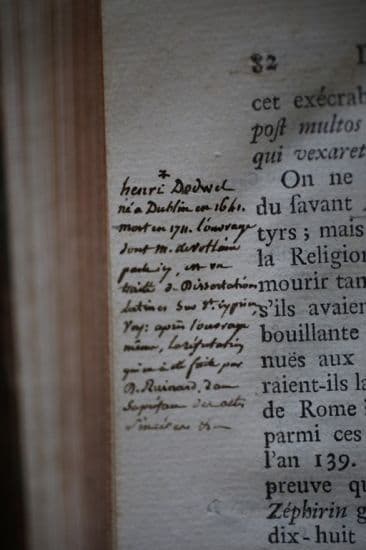 *
henri Dodwel
né a Dublin en 1641.
mort en 1711. l'ouvrage
dont m. de voltaire
parle icy, est un
traité de Dissertations
latines sur St. Cyprien,
Voy: après l'ouvrage
même, la réfutation
qui en a été faite par
D. Ruinard, dans
sa préface des actes
Sinceres &c
82
cet exécrab
post multos
qui vexaret
On ne
du savant
tyrs ; mais
la Religion
mourir tan
s'ils avaien
bouillante
nués aux
raient-ils la
de Rome ?
parmi ces
l'an 139.
preuve qu
Zéphirin g
dix-huit